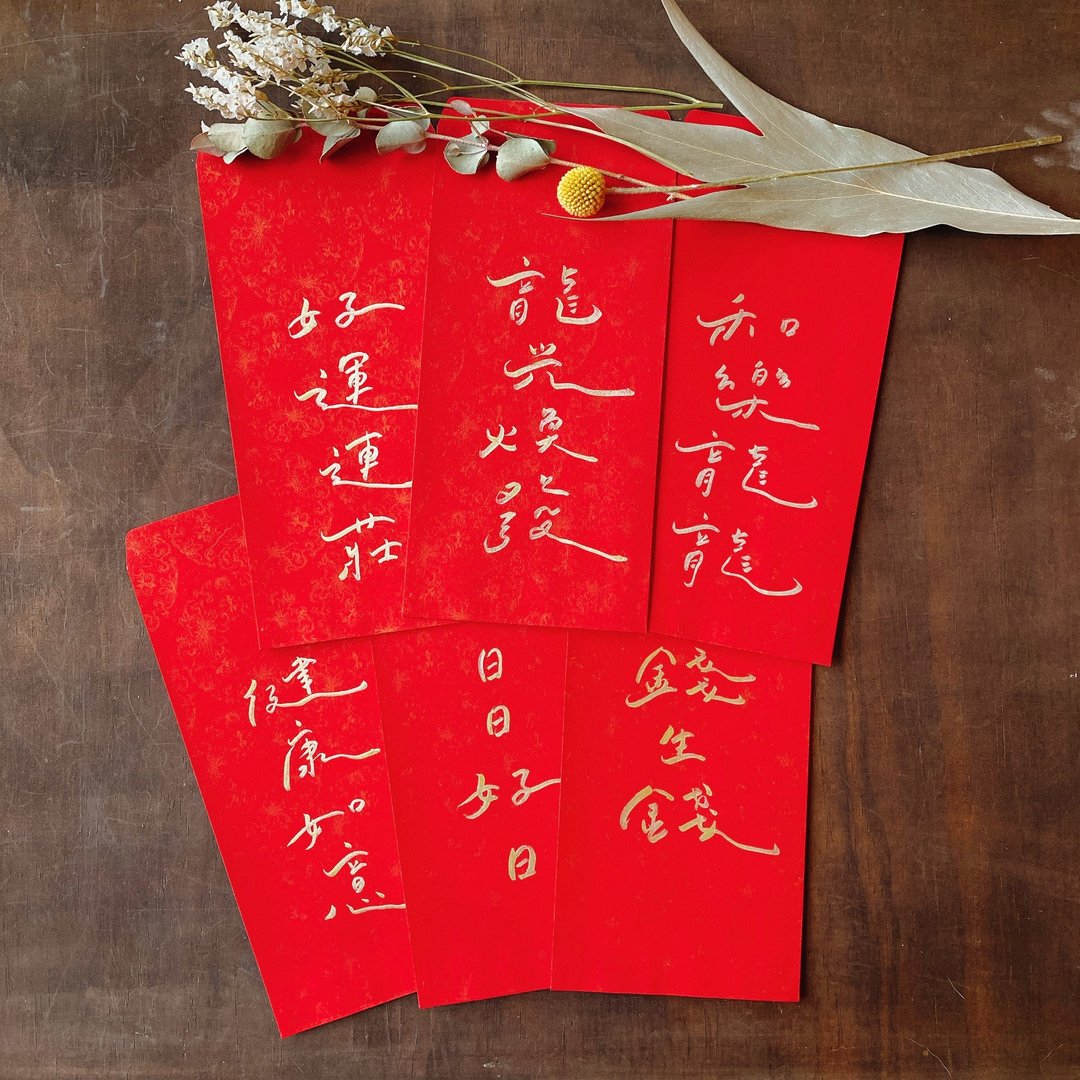 好運連莊
龍光煥發
和樂龍龍
健康如意
日日好日
錢生錢